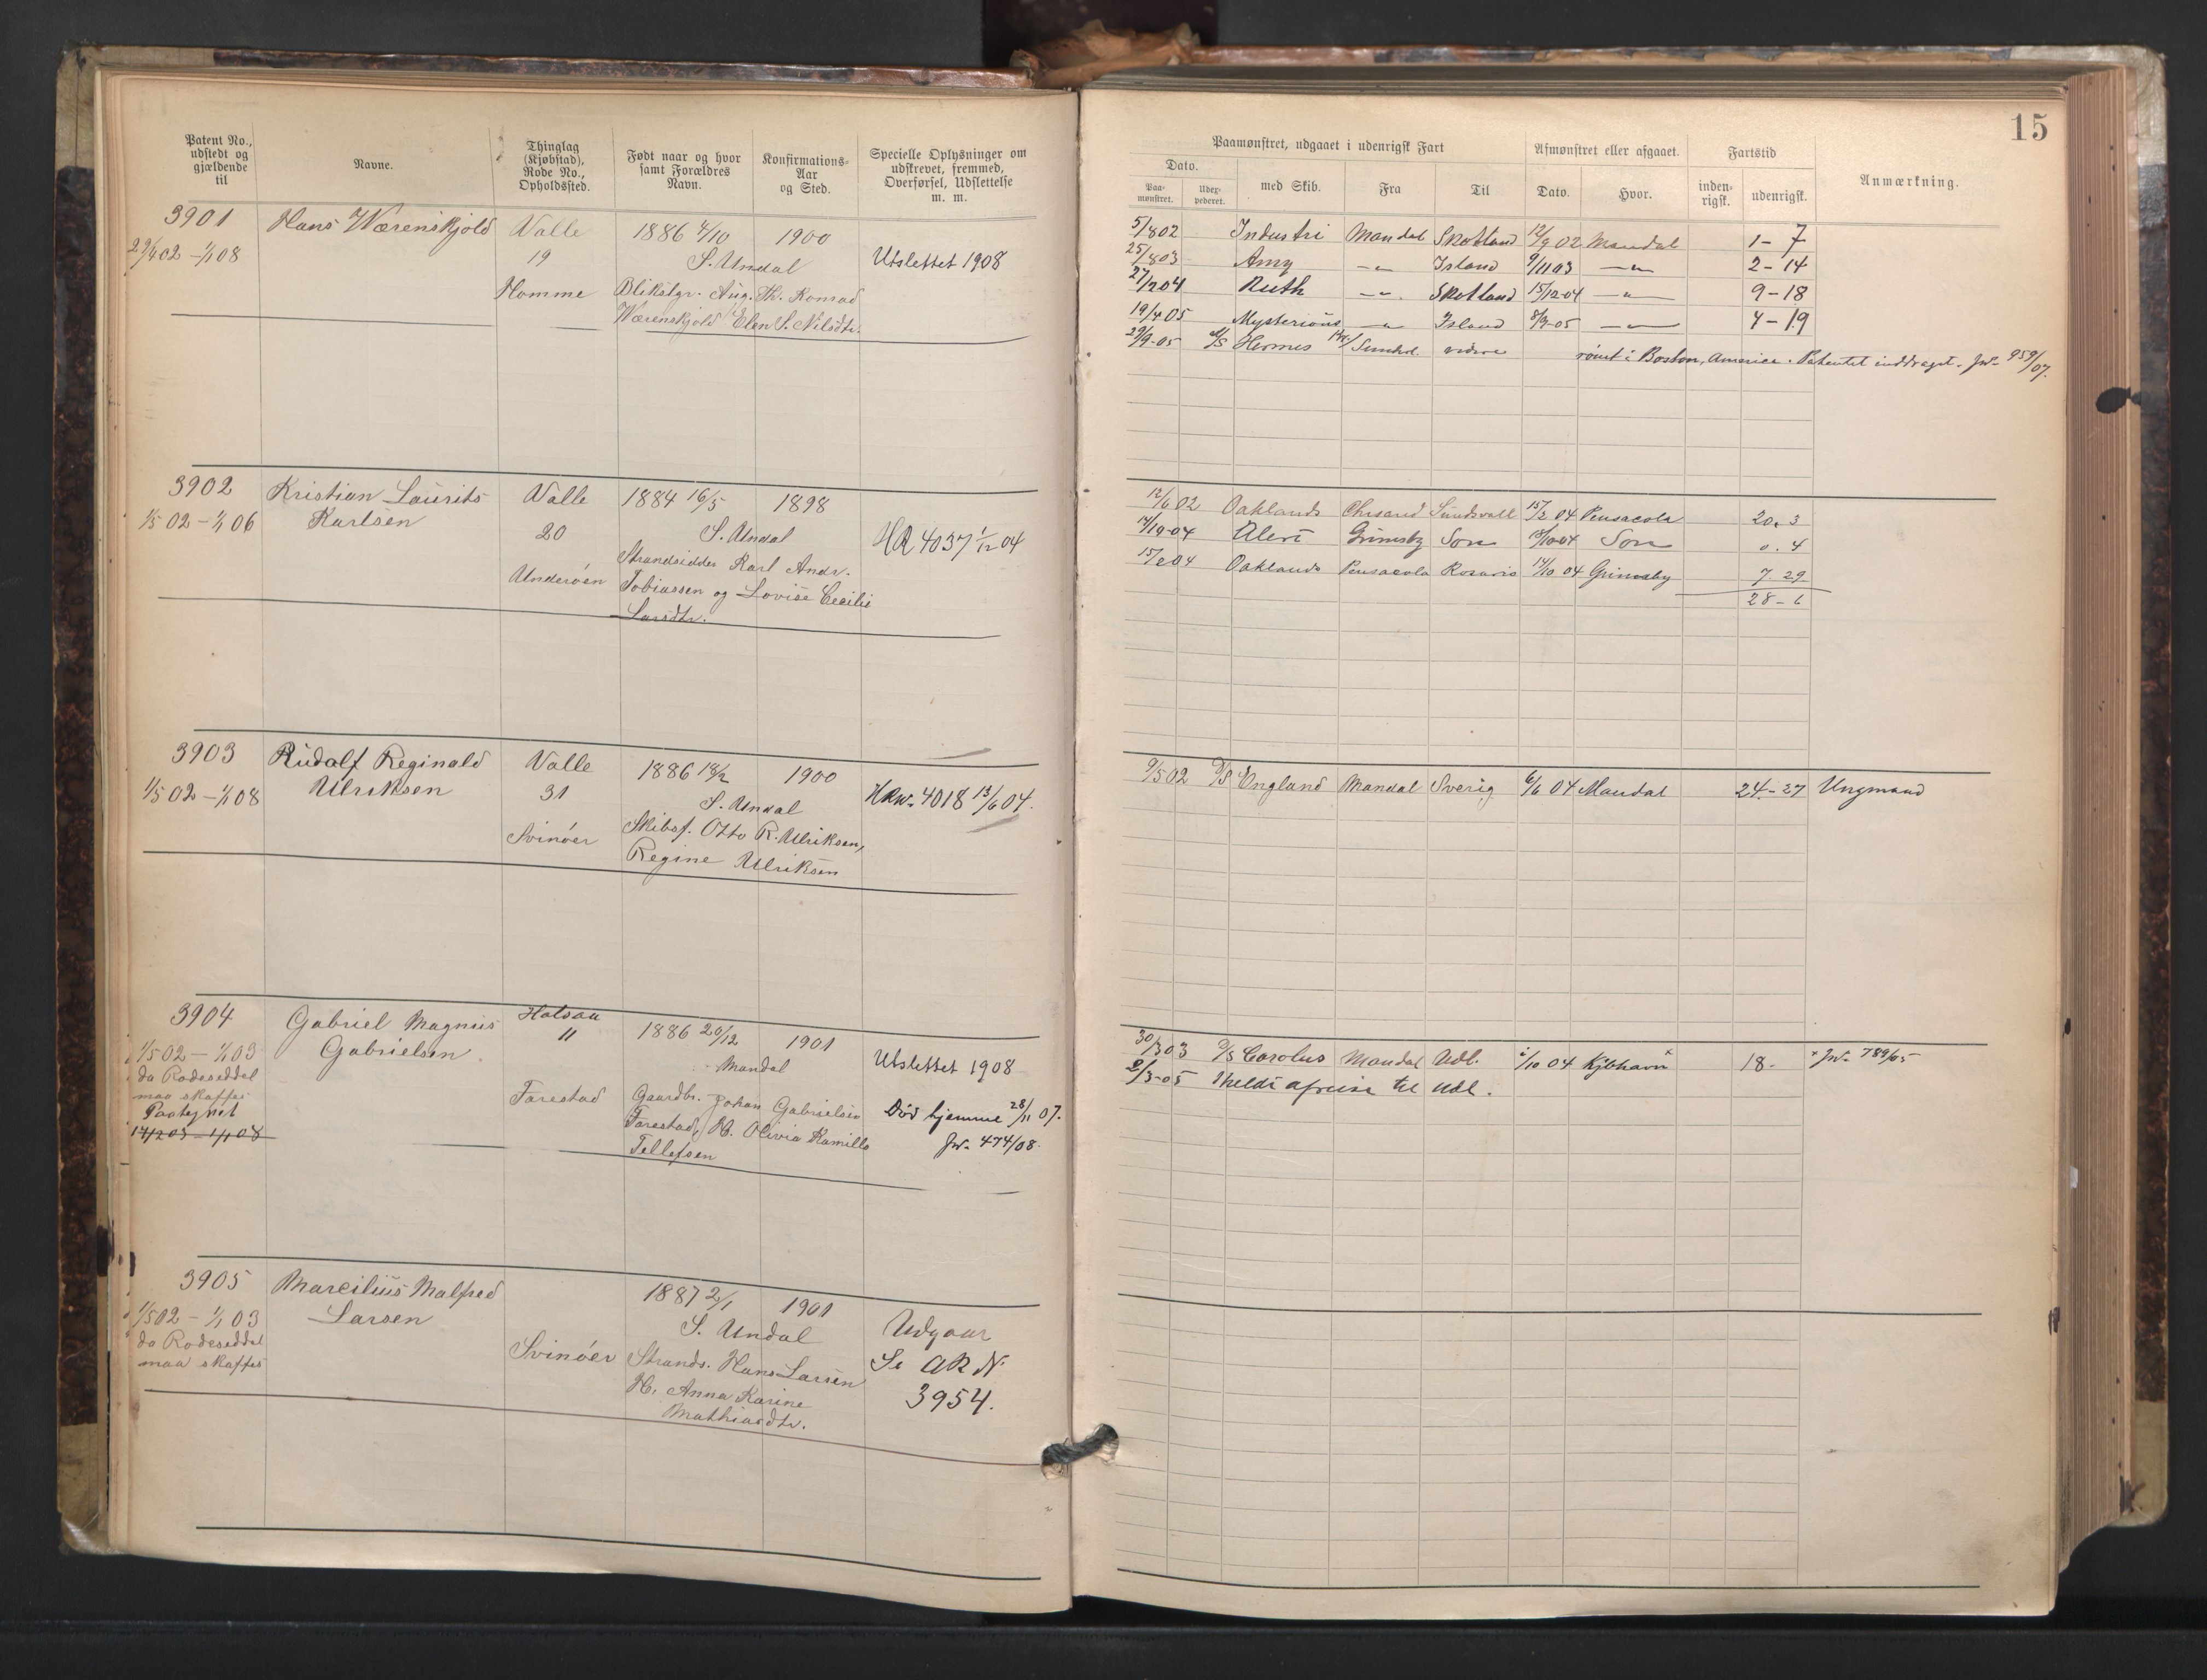 Patent No., udstedt og gjældende til
Navne.
Thinglag (Kjøbstad), Rode No., Opholdssted.
Født naar og hvor samt Forældres Navn.
Konfirmations-Aar og Sted.
Specielle Oplysninger om udskrevet, fremmed, Overførsel, Udslettelse m. m.
3901
29/4 02 – 1/1 08
Hans Wærenskjold
Valle
19
Homme
1886 4/10 1900
S. Undal
Blikslgr. Aug. Th. Konrad
Wærenskjold Elen S. Nilsdtr.
Utslettet 1908
3902
1/5 02 – 1/1 06
Kristian Laurits
Karlsen
Valle
20
Underøen
1884 16/5 1898
S. Undal
Strandsidder Karl Andr.
Tobiassen og Lovise Cecilie
Larsdtr.
HR 4037 1/12 04
3903
1/5 02 – 1/1 08
Rudolf Reginald
Ulriksen
Valle
31
Svinøer
1886 18/2 1900
S. Undal
Skibsf. Otto R. Ulriksen,
Regine Ulriksen
HRN. 4018 13/6 04.
3904
1/5 02 – 1/1 03
da Rodeseddel
maa skaffes
Paategnet
14/2 03 – 1/1 08
Gabriel Magnus
Gabrielsen
Halsaa
11
Tarestad
1886 20/12 1901
Mandal
Gaardbr. Johan Gabrielsen
Tarestad, H. Olivia Kamilla
Tellefsen
Utslettet 1908
Død hjemme 28/11 07.
Jn. 474/08.
3905
1/5 02 – 1/1 03
da Rodeseddel
maa skaffes
Marcilius Malfred
Larsen
Svinøer
1887 2/1 1901
S. Undal
Strands. Hans Larsen
H. Anna Karine
Mathiasdtr.
Udgaar
Se AR N.
3954.
15
Paamønstret, udgaaet i udenrigsk Fart
Afmønstret eller afgaaet.
Fartstid
Anmærkning.
Dato.
Paa-mønstret.
Uder-pederet.
med Skib.
Fra
Til
Dato.
Hvor.
inden-rigsk.
udenrigsk.
5/8 02 Industri Mandal Skotland 12/9 02 Mandal 1 – 7
25/8 03 Amy – " – Island 9/11 03 – " – 2 – 14
27/2 04 Ruth – " – Skotland 15/12 04 – " – 9 – 18
19/4 05 Mysteriøus – " – Island 8/9 05 – " – 4 – 19
29/9 05 Hermes videre rømt i Boston, America. Patentet inddraget. Jn. 959/07.
12/6 02 Oaklands Chrsand Sundsvall 15/2 04 Pensacola 20. 3
14/10 04 Alert Grimsby Son 18/10 04 Son 0. 4
15/2 04 Oaklands Pensacola Rosario 14/10 04 Grimsby 7. 29
28 – 6
9/5 02 D/S England Mandal Sverig 6/6 04 Mandal 24 – 27 Ungmand
30/3 03 D/S Carolus Mandal Udl. 1/10 04 Kjbhavn x 18 - x Jn. 789/05
2/3 05 Meldt afreise til Udl.